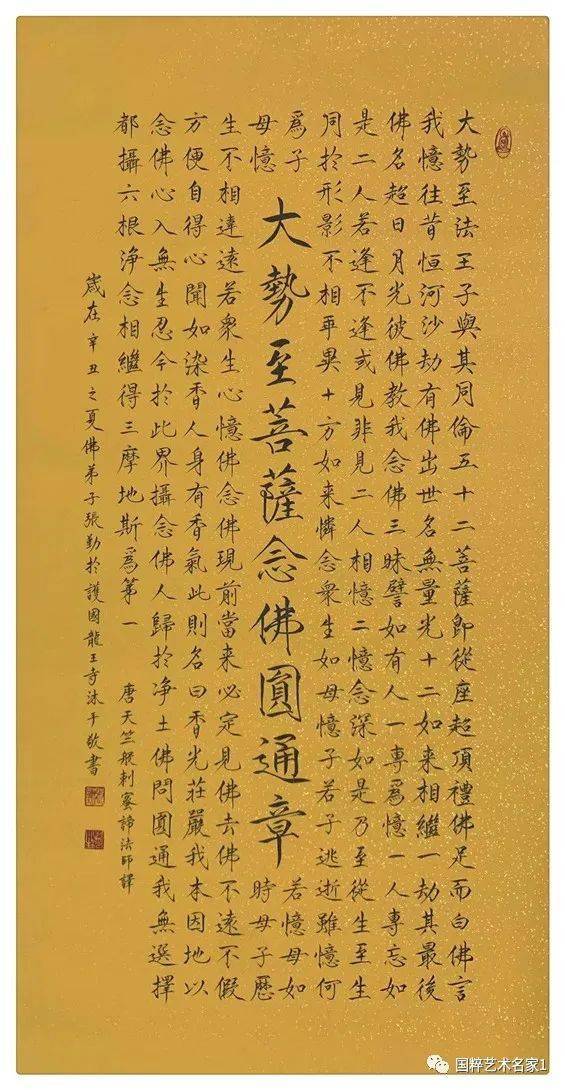 大勢至法王子與其同倫五十二菩薩即從座起頂禮佛足而白佛言
我憶往昔恒河沙劫有佛出世名無量光十二如来相繼一劫其最後
佛名超日月光彼佛教我念佛三昧譬如有人一專爲憶一人專忘如
是二人若逢不逢或見非見二人相憶二憶念深如是乃至從生至生
同於形影不相乖異十方如来憐念衆生如母憶子若子逃逝雖憶何
爲子若憶母如
母憶時母子歷
大勢至菩薩念佛圓通章
生不相違遠若衆生心憶佛念佛現前當来必定見佛去佛不遠不假
方便自得心開如染香人身有香氣此則名曰香光莊嚴我本因地以
念佛心入無生忍今於此界攝念佛人歸於淨土佛問圓通我無選擇
都攝六根淨念相繼得三摩地斯爲第一
唐天竺般剌蜜諦法師譯
歲在辛丑之夏佛弟子張勤於護國龍王寺沐手敬書
国粹艺术名家1